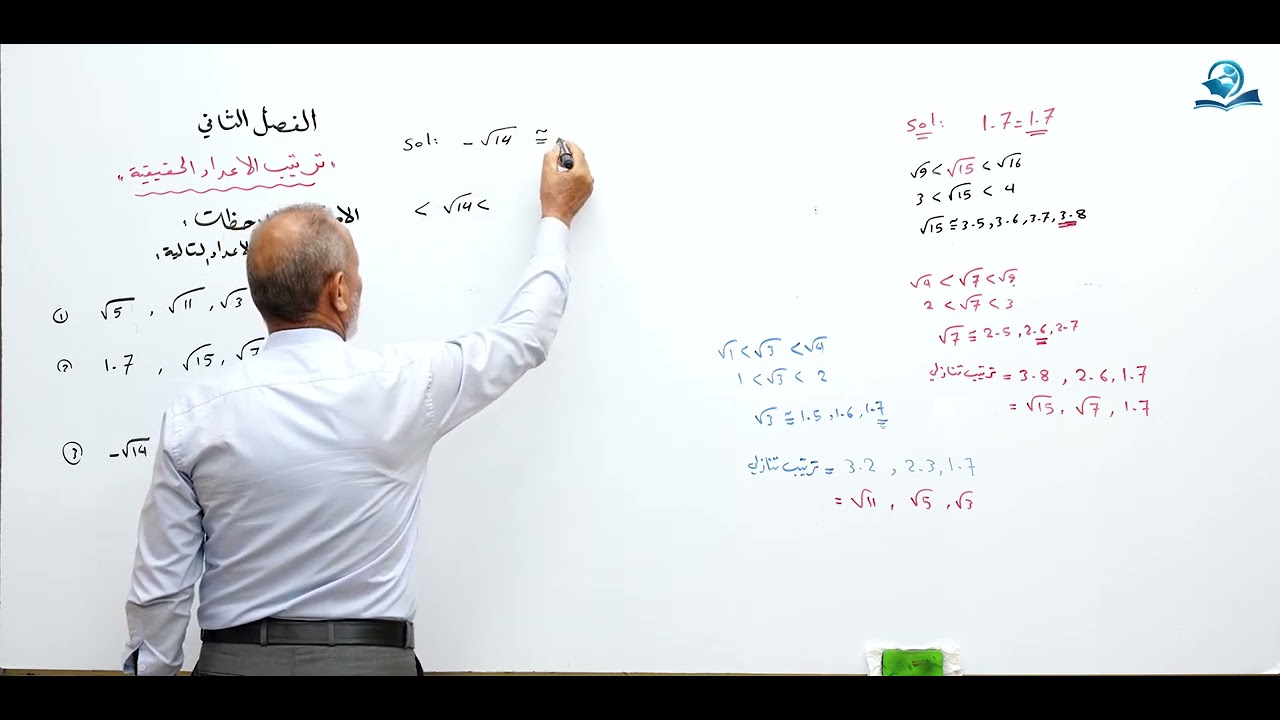 الفصل الثاني
"ترتيب الاعداد الحقيقية"
① √5 , √11 , √3
② 1.7 , √15 , √7
③ -√14
Sol: -√14 ≅
< √14 <
Sol: 1.7 = 1.7
√9 < √15 < √16
3 < √15 < 4
√15 ≅ 3.5, 3.6, 3.7, 3.8
√4 < √7 < √9
2 < √7 < 3
√7 ≅ 2.5, 2.6, 2.7
ترتيب تنازلي = 3.8 , 2.6 , 1.7
= √15 , √7 , 1.7
√1 < √3 < √4
1 < √3 < 2
√3 ≅ 1.5, 1.6, 1.7
ترتيب تنازلي = 3.2 , 2.3, 1.7
= √11 , √5 , √3